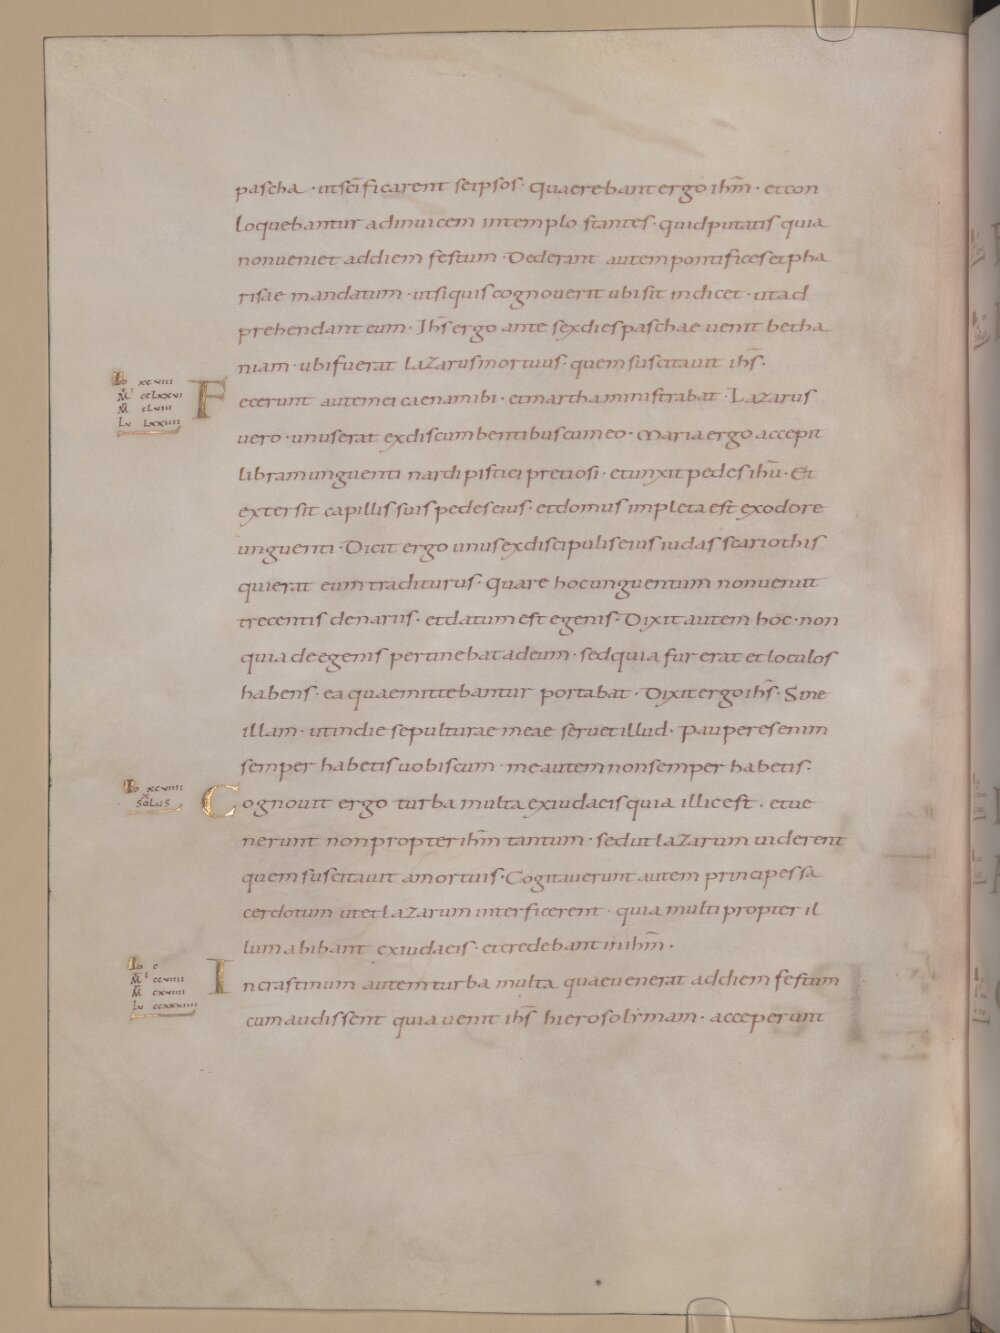 pascha · ut sc̄ificarent seipsos · Quaerebant ergo ihm̄ · et con
loquebantur adinuicem in templo stantes · quid putatis quia
non ueniet ad diem festum · Dederant autem pontifices et pha
risae mandatum · ut si quis cognouerit ubi sit indicet · ut ad
prehendant eum · Ihs̄ ergo ante sex dies paschae uenit betha
niam · ubi fuerat Lazarus mortuus · quem suscitauit ihs̄ ·
Io xcviii
M̄ᵗ cclxxvi
M̄ clviii
Lu lxxiiii
Fecerunt autem ei caenam ibi · et martha ministrabat · Lazarus
uero · unus erat ex discumbentibus cum eo · Maria ergo accepit
libram unguenti nardi pistici pretiosi · et unxit pedes ihū · Et
extersit capillis suis pedes eius · et domus impleta est ex odore
unguenti · Dicit ergo unus ex discipulis eius iudas scariothis
qui erat eum traditurus · Quare hoc unguentum non uenuit
trecentis denariis · et datum est egenis · Dixit autem hoc · non
quia de egenis pertinebat ad eum · sed quia fur erat et loculos
habens · ea quae mittebantur portabat · Dixit ergo ihs̄ · Sine
illam · ut in die sepulturae meae seruet illud · Pauperes enim
semper habetis uobiscum · me autem non semper habetis ·
Io xcviiii
x
SOLUS
Cognouit ergo turba multa ex iudaeis quia illic est · et ue
nerunt non propter ihm̄ tantum · sed ut Lazarum uiderent
quem suscitauit a mortuis · Cogitauerunt autem principes sa
cerdotum ut et Lazarum interficerent · quia multi propter il
lum abibant ex iudaeis · et credebant in ihm̄ ·
Io c
M̄ᵗ ccviiii
M̄ cxviiii
Lu ccxxxiiii
In crastinum autem turba multa quae uenerat ad diem festum
cum audissent quia uenit ihs̄ hierosolymam · acceperunt